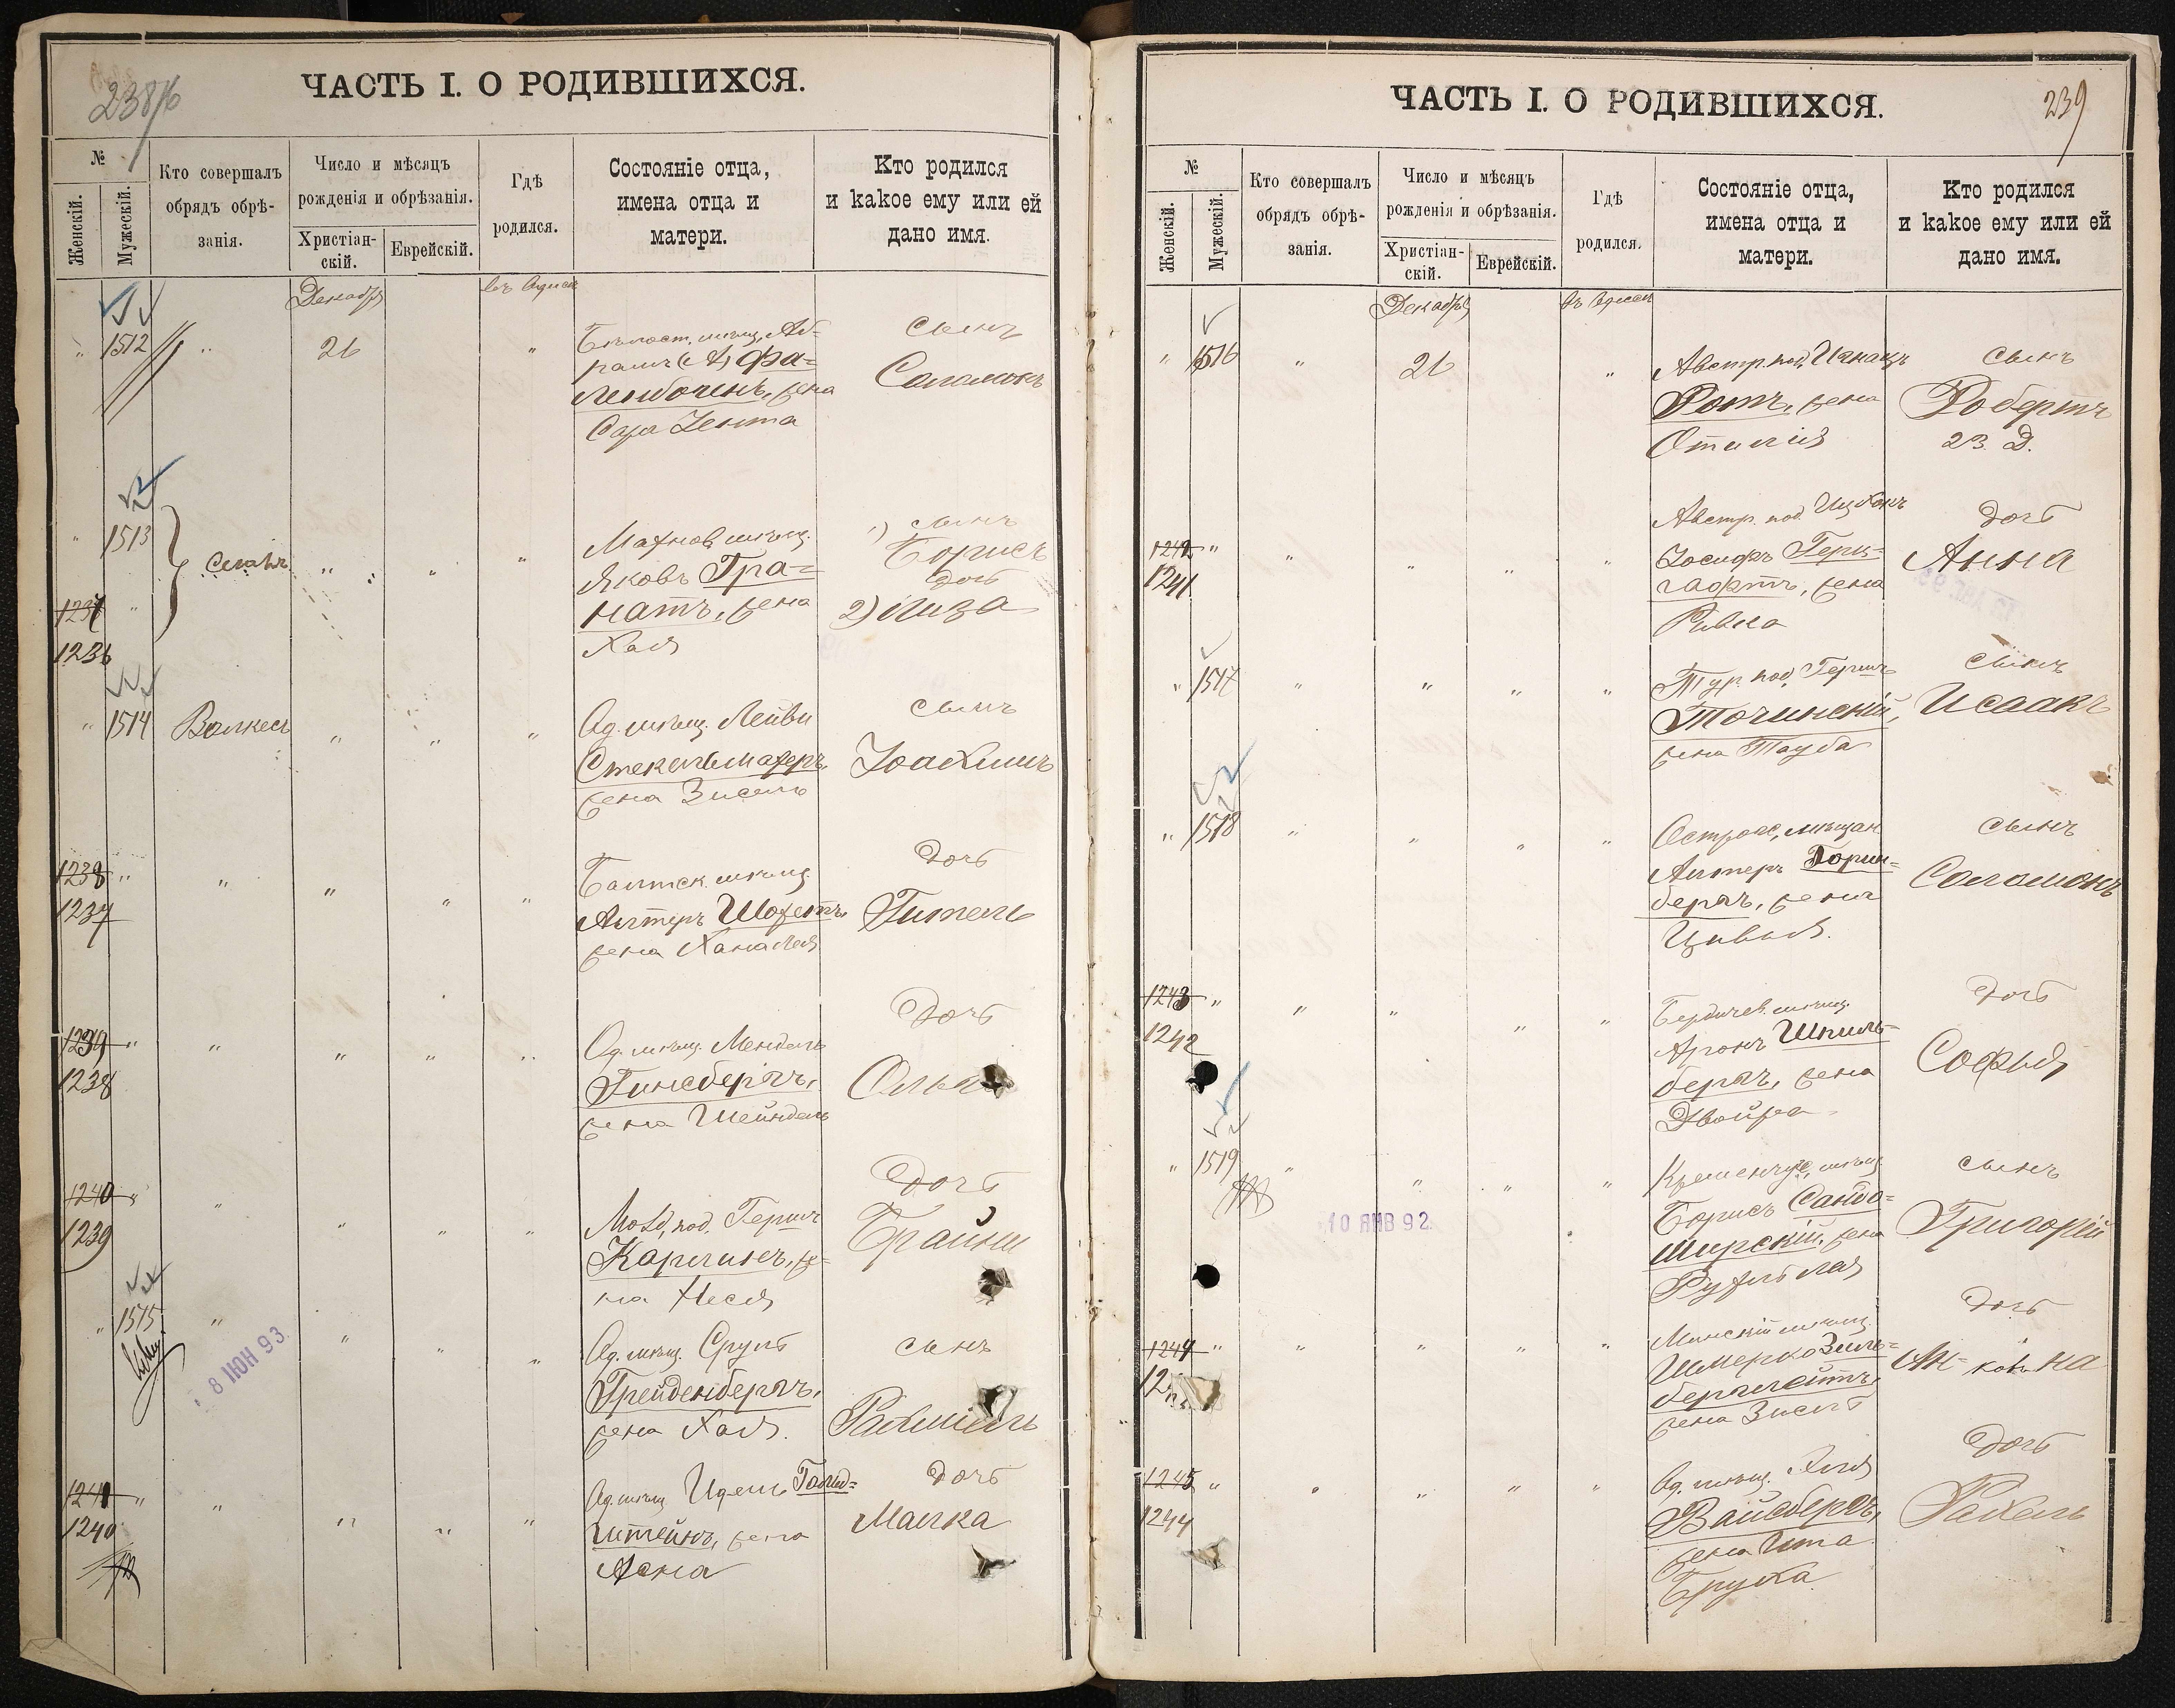 238/б
ЧАСТЬ I. О РОДИВШИХСЯ.
№
Женскій.
Мужескій.
Кто совершалъ
обрядъ обрѣ-
занія.
Число и мѣсяцъ
рожденія и обрѣзанія.
Христіан-
скій.
Еврейскій.
Гдѣ
родился.
Состояніе отца,
имена отца и
матери.
Кто родился
и какое ему или ей
дано имя.
Декабрь
въ Одессѣ
" 1512 " 26 "
мѣщ. Аб-
рамъ
жена
Сара Зента
сынъ
Соломонъ
" 1513
1237 "
1236
" " "
мѣщ.
Яковъ Гра-
натъ, жена
Хая
1) сынъ
Борисъ
дочь
2) Лиза
" 1514 Волкесъ " " "
Од. мѣщ. Лейви
Стекельмахеръ,
жена Зисель
сынъ
Іоахимъ
1238 " " " " "
1237
Балтск. мѣщ.
Алтеръ Шохетъ,
жена Хана Лея
дочь
Гитель
1239 " " " " "
1238
Од. мѣщ. Мендель
Гинсбергъ,
жена Шейндель
дочь
1240 " " " " "
1239
под. Гершъ
же-
на Неся
дочь
Брайна
" 1515 " " " "
8 ІЮН 93.
Од. мѣщ. Сруль
Грейденбергъ,
жена Хая.
сынъ
Рахміель
1241 " " " " "
1240
Од. мѣщ. Идель Гольд-
штейнъ, жена
Асна
дочь
Малка
239
ЧАСТЬ I. О РОДИВШИХСЯ.
№
Женскій.
Мужескій.
Кто совершалъ
обрядъ обрѣ-
занія.
Число и мѣсяцъ
рожденія и обрѣзанія.
Христіан-
скій.
Еврейскій.
Гдѣ
родился.
Состояніе отца,
имена отца и
матери.
Кто родился
и какое ему или ей
дано имя.
Декабрь
въ Одессѣ
" 1516 " 26 "
Австр. под. Игнацъ
Ротъ, жена
Отилія
сынъ
Робертъ
23 Д.
1242 " " " " "
1241
Австр. под. Ицхокъ
Іосифъ Герц-
гафтъ, жена
Ривка
дочь
Анна
" 1517 " " " "
Тур. под. Гершъ
Точинскій,
жена Тауба
сынъ
Исаакъ
" 1518 " " " "
мѣщан.
Алтеръ
бергъ, жена
Цивья.
сынъ
Соломонъ
1243 " " " " "
1242
Бердичев. мѣщ.
Аронъ Шпиль-
бергъ, жена
Двойра
дочь
Софья
" 1519 " " " "
10 ЯНВ 92.
Кременчуг. мѣщ.
Борисъ Сандо-
мирскій, жена
Рухля Лея
сынъ
Григорій
1244 " " " " "
Минскій мѣщ.
Шмерко Зиль-
берглейтъ,
жена Зисль
дочь
1245 " " " " "
1244
Од. мѣщ. Хля
Вайсбергъ,
жена Ита
Бруха
дочь
Рахель